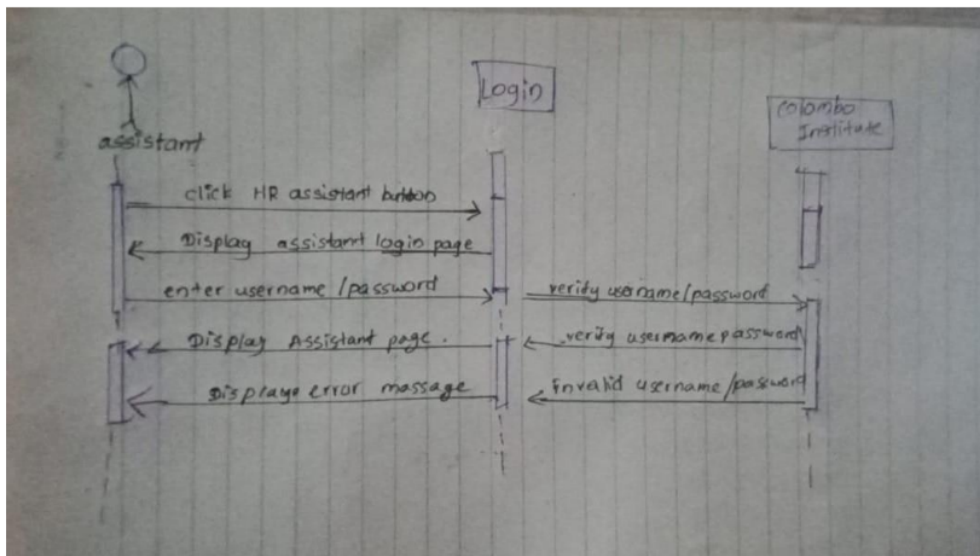 Login
Colombo
Institute
assistant
click HR assistant button
Display assistant login page
enter username /password
verify username/password
Display Assistant page.
verify username password
Displaye error massage
invalid username/password